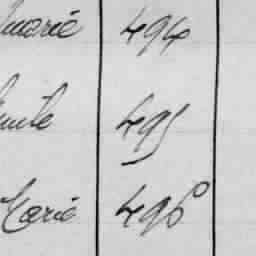 marie 494
mile 495
Marie 496